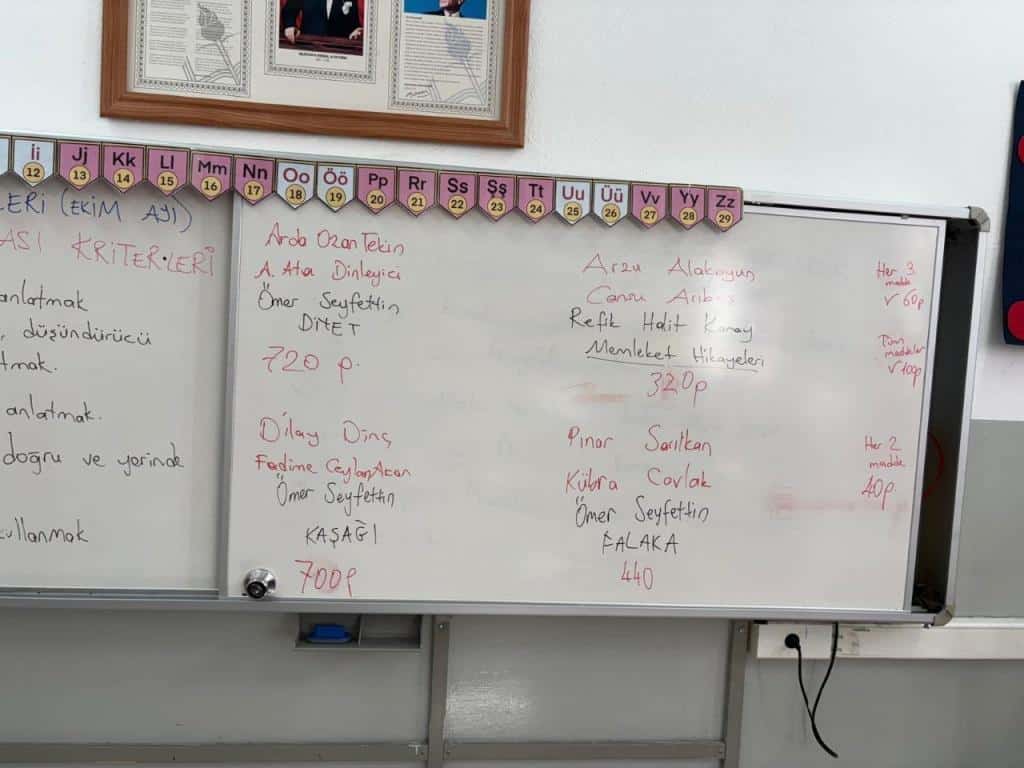 İi Jj Kk Ll Mm Nn Oo Öö Pp Rr Ss Şş Tt Uu Üü Vv Yy Zz
12 13 14 15 16 17 18 19 20 21 22 23 24 25 26 27 28 29
LERİ (EKİM AYI)
ASI KRİTERLERİ
anlatmak
, düşündürücü
tmak.
anlatmak.
doğru ve yerinde
kullanmak
Arda Ozan Tekin
A. Ata Dinleyici
Ömer Seyfettin
DİYET
720 p.
Dilay Dinç
Fadime Ceylan
Ömer Seyfettin
KAŞAĞI
700p
Arzu Alakoyun
Cansu
Refik Halit Karay
Memleket Hikayeleri
320p
Pınar Sarıkan
Kübra Cavlak
Ömer Seyfettin
FALAKA
440
Her 3
madde
√ 60p
Tüm
maddeler
√ 100p
Her 2
madde
40p